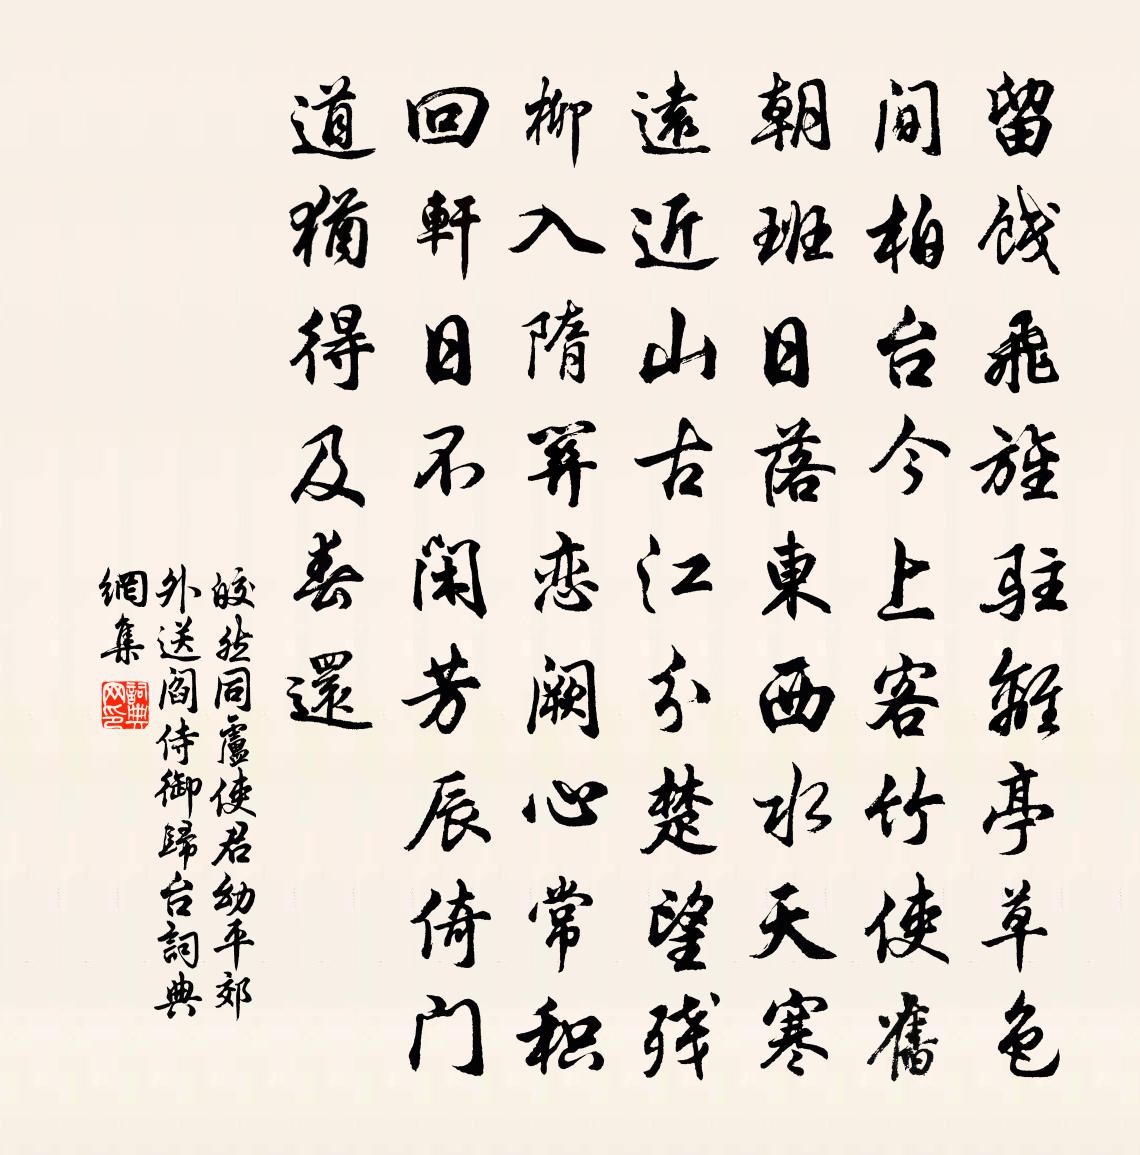 留餞飛旌駐離亭草色
间柏台今上客竹使舊
朝班日落東西水天寒
遠近山古江分楚望残
柳入隋關恋阙心常积
回軒日不闲芳辰倚门
道猶得及春還
皎然同盧使君幼平郊
外送閻侍御歸台詞典
網集